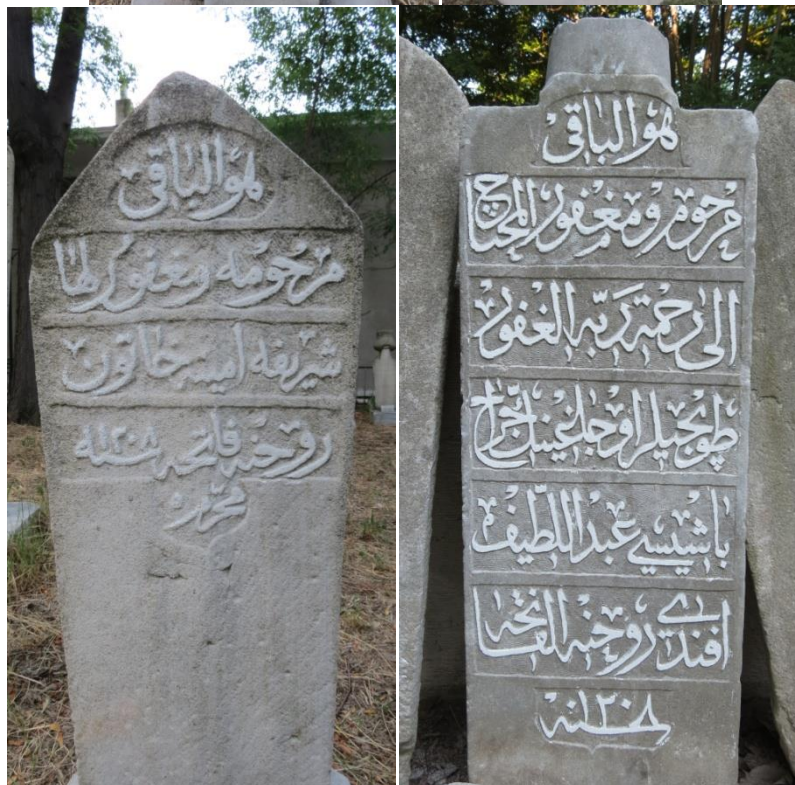 هو الباقی
مرحومه و مغفور لها
شریفه امینه خاتون
روحنه فاتحه سنه ١٢٠٨
محرم
هو الباقی
مرحوم و مغفور المحتاج
الی رحمة ربه الغفور
طوپجیلر اوجاغینك جراح
باشیسی عبد اللطیف
افندی روحنه الفاتحه
سنه